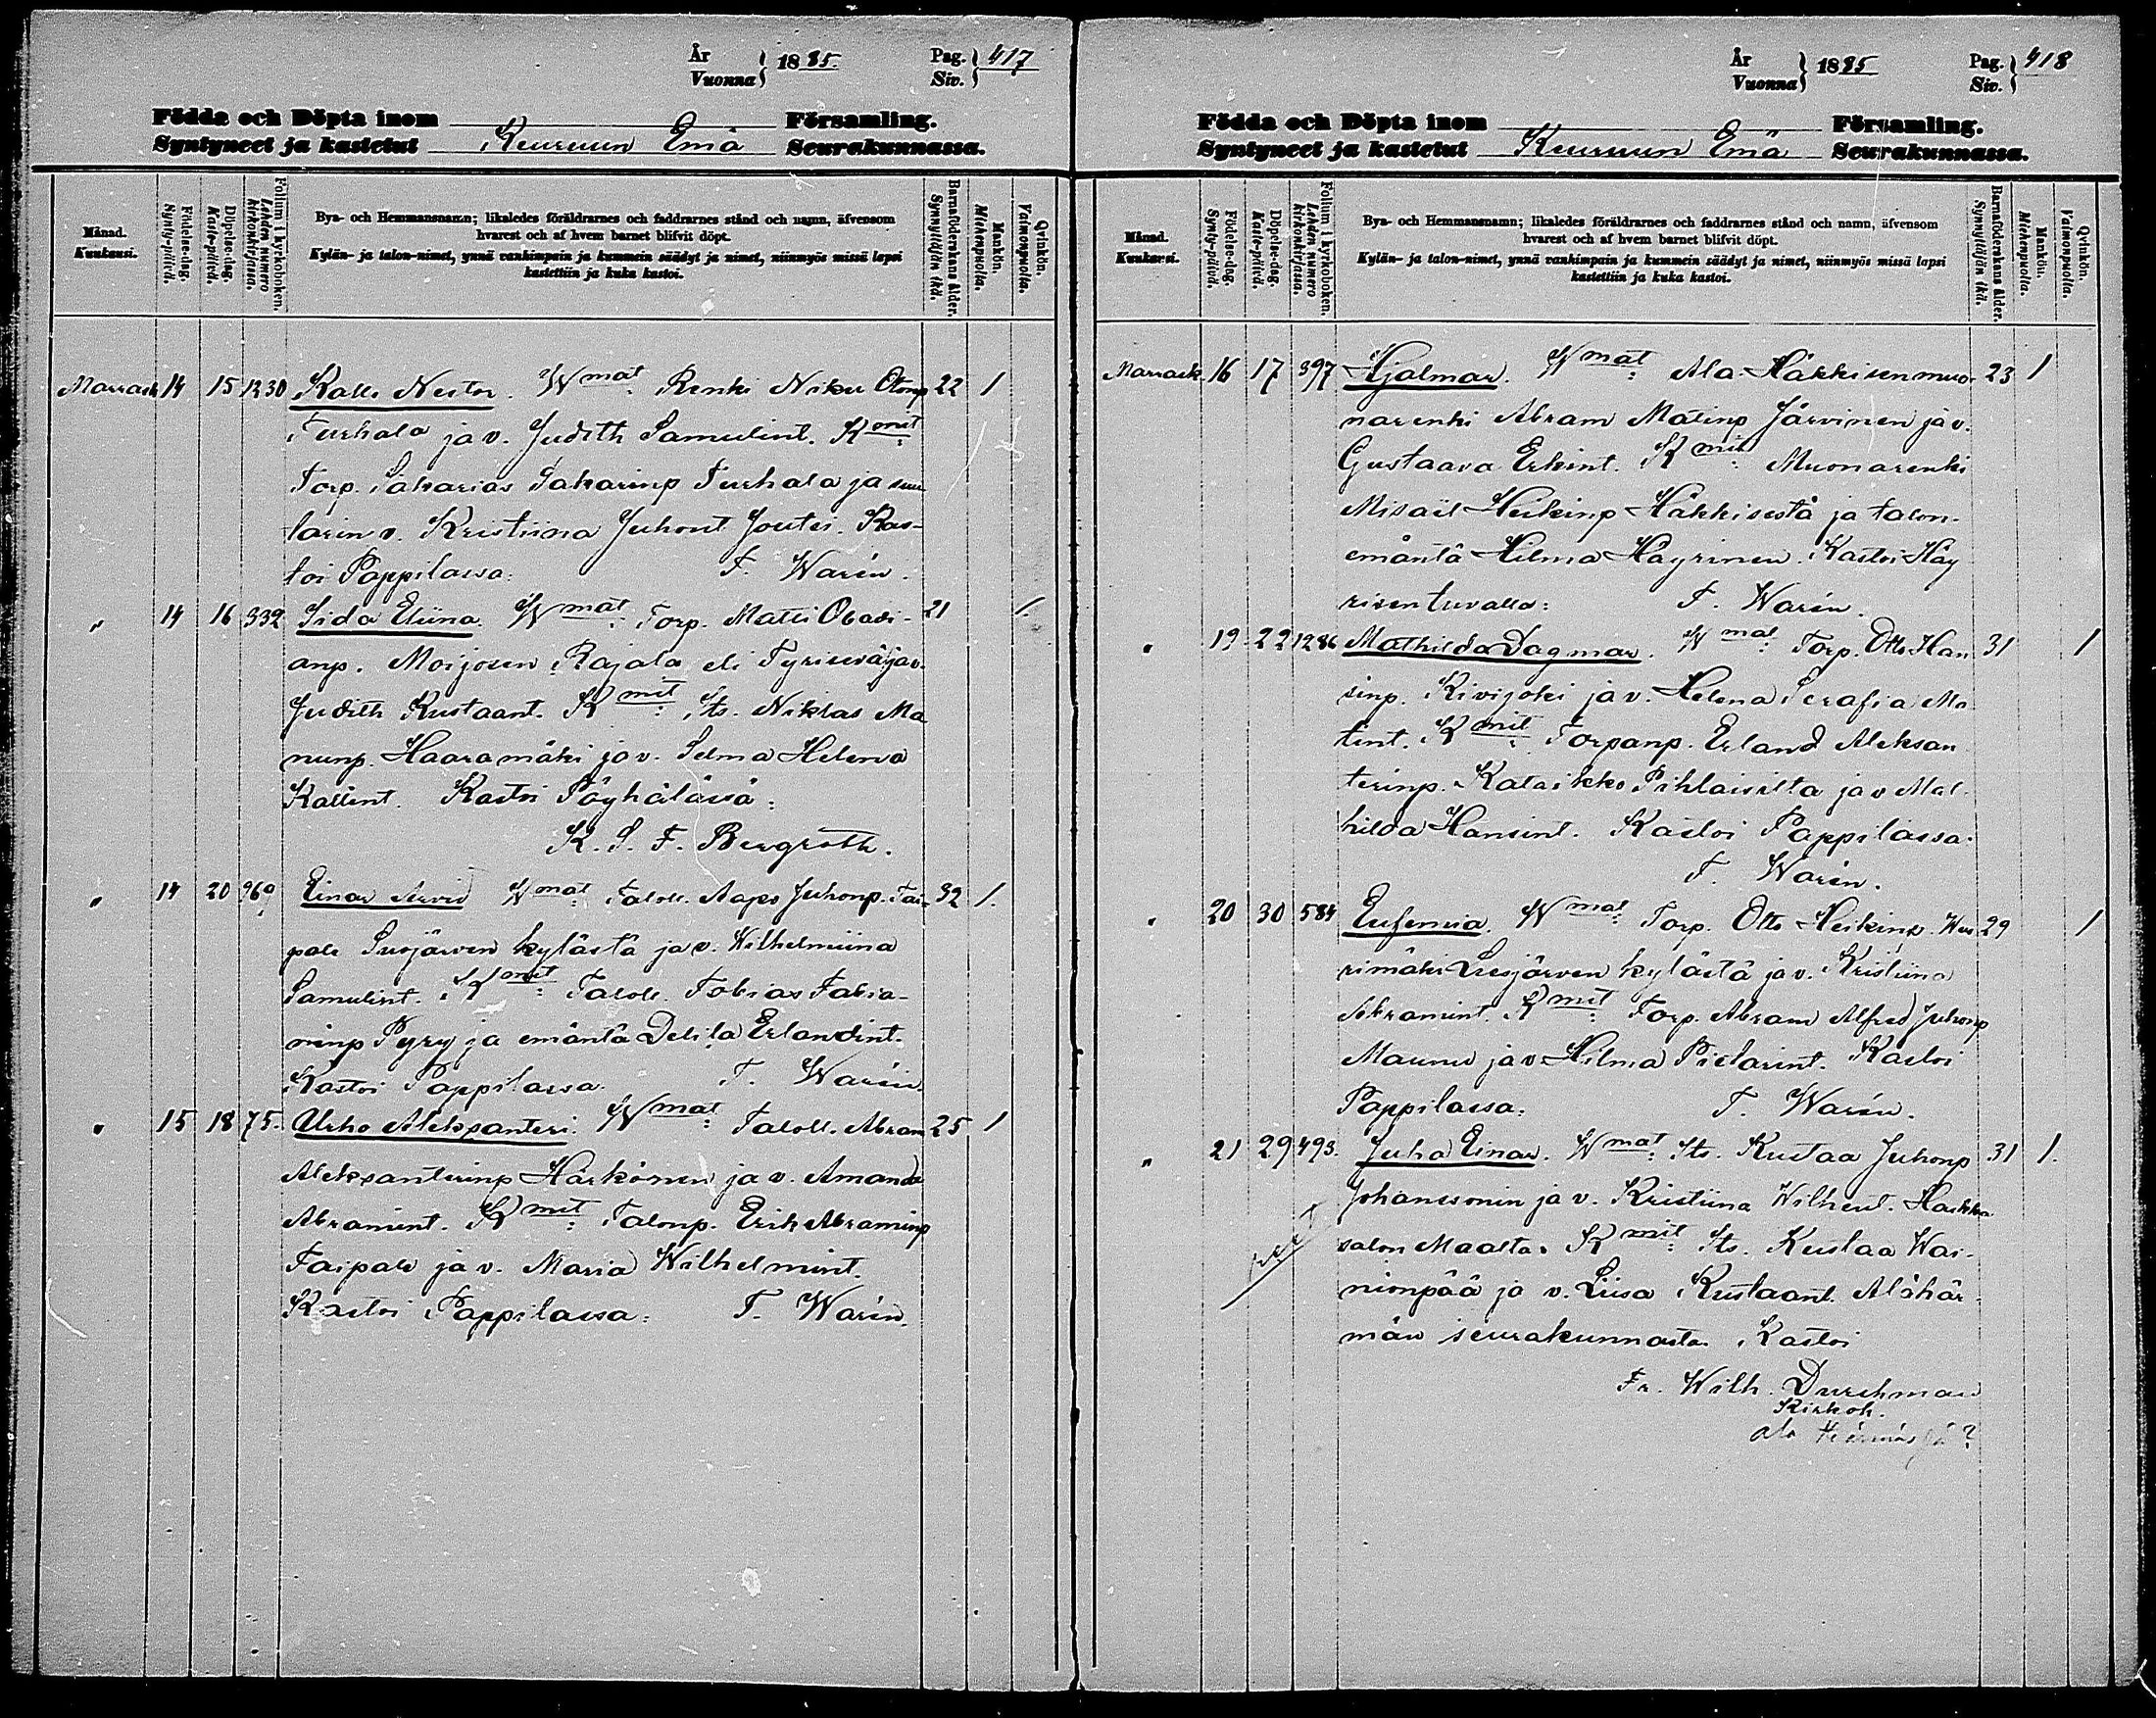 År Vuonna } 1885. Pag. Siv. } 417
Födda och Döpta inom Församling.
Syntyneet ja kastetut Keuruun Emä Seurakunnassa.
Månad. Kuukausi.
Födelse-dag. Synty-päivä.
Döpelse-dag. Kaste-päivä.
Folium i kyrkoboken. Lehden numero kirkonkirjassa.
Bya- och Hemmansnamn; likaledes föräldrarnes och faddrarnes stånd och namn, äfvensom
hvarest och af hvem barnet blifvit döpt.
Kylän- ja talon-nimet, ynnä vanhimpain ja kummein säädyt ja nimet, niinmyös missä lapsi
kastettiin ja kuka kastoi.
Barnaföderskans ålder. Synnyttäjän ikä.
Mankön. Miehenpuolia.
Qvinkön. Vaimonpuolia.
Marrask 14 15 1230 Kalle Nestor. Wmat: Renki Otonp 22 1
Turhala ja v. Judith Samulint. Kmit:
Torp. Sakarias Sakarinp Turhala ja suu
tarin v. Kristiina Juhont Joutsi. Kas-
toi Pappilassa: F. Warén.
" 14 16 332 Iida Eliina Wmat: Torp. Matti Obadi- 21 1.
anp. Moijosen Rajala eli ja v.
Judith Kustaant. Kmit: Its. Niklas Ma
nunp. Haaramäki ja v. Selma Helena
Kallent. Kastoi Pöyhölässä:
K. S. F. Bergroth.
" 14 20 969 Einar Arvid Wmat: Taloll. Aapo Juhonp. Tai- 32 1.
pale Suojärven kylästä ja v. Wilhelmiina
Samulint. Kmit: Taloll. Tobias Fabia-
ninp Pyry ja emäntä Delila Erlandint.
Kastoi Pappilassa. F. Warén.
" 15 18 75. Urho Aleksanteri. Wmat: Taloll. Abram 25 1
Aleksanterinp Härkönen ja v. Amanda
Abramint. Kmit: Talonp. Erik Abraminp
Taipale ja v. Maria Wilhelmint.
Kastoi Pappilassa: F. Warén.
År Vuonna } 1885 Pag. Siv. } 418
Födda och Döpta inom Församling.
Syntyneet ja kastetut Keuruun Emä Seurakunnassa.
Månad. Kuukausi.
Födelse-dag. Synty-päivä.
Döpelse-dag. Kaste-päivä.
Folium i kyrkoboken. Lehden numero kirkonkirjassa.
Bya- och Hemmansnamn; likaledes föräldrarnes och faddrarnes stånd och namn, äfvensom
hvarest och af hvem barnet blifvit döpt.
Kylän- ja talon-nimet, ynnä vanhimpain ja kummein säädyt ja nimet, niinmyös missä lapsi
kastettiin ja kuka kastoi.
Barnaföderskans ålder. Synnyttäjän ikä.
Mankön. Miehenpuolia.
Qvinkön. Vaimonpuolia.
Marrask. 16 17 397 Hjalmar. Wmat: Ala-Häkkisen muo- 23 1
narenki Abram Matinp Järvinen ja v.
Gustaava Erkint. Kmit: Muonarenki
Misaël Heikinp Häkkisestä ja talon-
emäntä Hilma Häyrinen. Kastoi Häy
risen tuvalla: F. Warén.
" 19 22 1286 Mathilda Dagmar. Wmat: Torp. Otto Han 31 1
sinp. Kivijoki ja v. Helena Serafia Ma
tint. Kmit: Torpanp. Erland Aleksan
terinp. Kataikko Pihlaisilta ja v Mat-
hilda Hansint. Kastoi Pappilassa.
F. Warén.
" 20 30 584 Eufemia. Wmat: Torp. Otto Heikinp. 29 1
rimäki Liesjärven kylästä ja v. Kristiina
Abramint. Kmit: Torp. Abram Alfred Juhonp
Maunu ja v Hilma Pietarint. Kastoi
Pappilassa. F. Warén.
" 21 29 493. Juha Einar. Wmat: Its. Kustaa Juhonp 31 1.
Johanssonin ja v. Kristiina Wilhent.
salon Maalta. Kmit: Its. Kustaa Wai-
nionpää ja v. Liisa Kustaant. Alahär-
män seurakunnasta. Kastoi
Fr. Wilh. Durchman
Kirkoh.